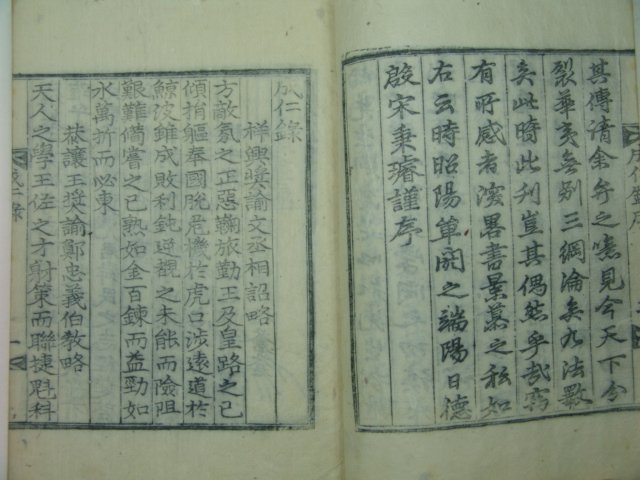 其傳請余弁之噫見今天下分
裂華夷無別三綱淪矣九法斁
矣此時此刊豈其偶然乎哉窃
有所感者漫畧書景慕之私如
右云時昭陽單閼之端陽日德
殷宋秉璿謹序
成仁錄
祥興奬諭文丞相詔略
方敵氛之正惡鞠旅勤王及皇路之已
傾捐軀奉國脫危機於虎口涉遠道於
鯨波雖成敗利鈍逆覩之未能而險阻
艱難備嘗之已熟如金百鍊而益勁如
水萬折而必東
恭讓王奬諭鄭忠義伯教略
天人之學王佐之才射策而聯捷魁科
成仁錄
一